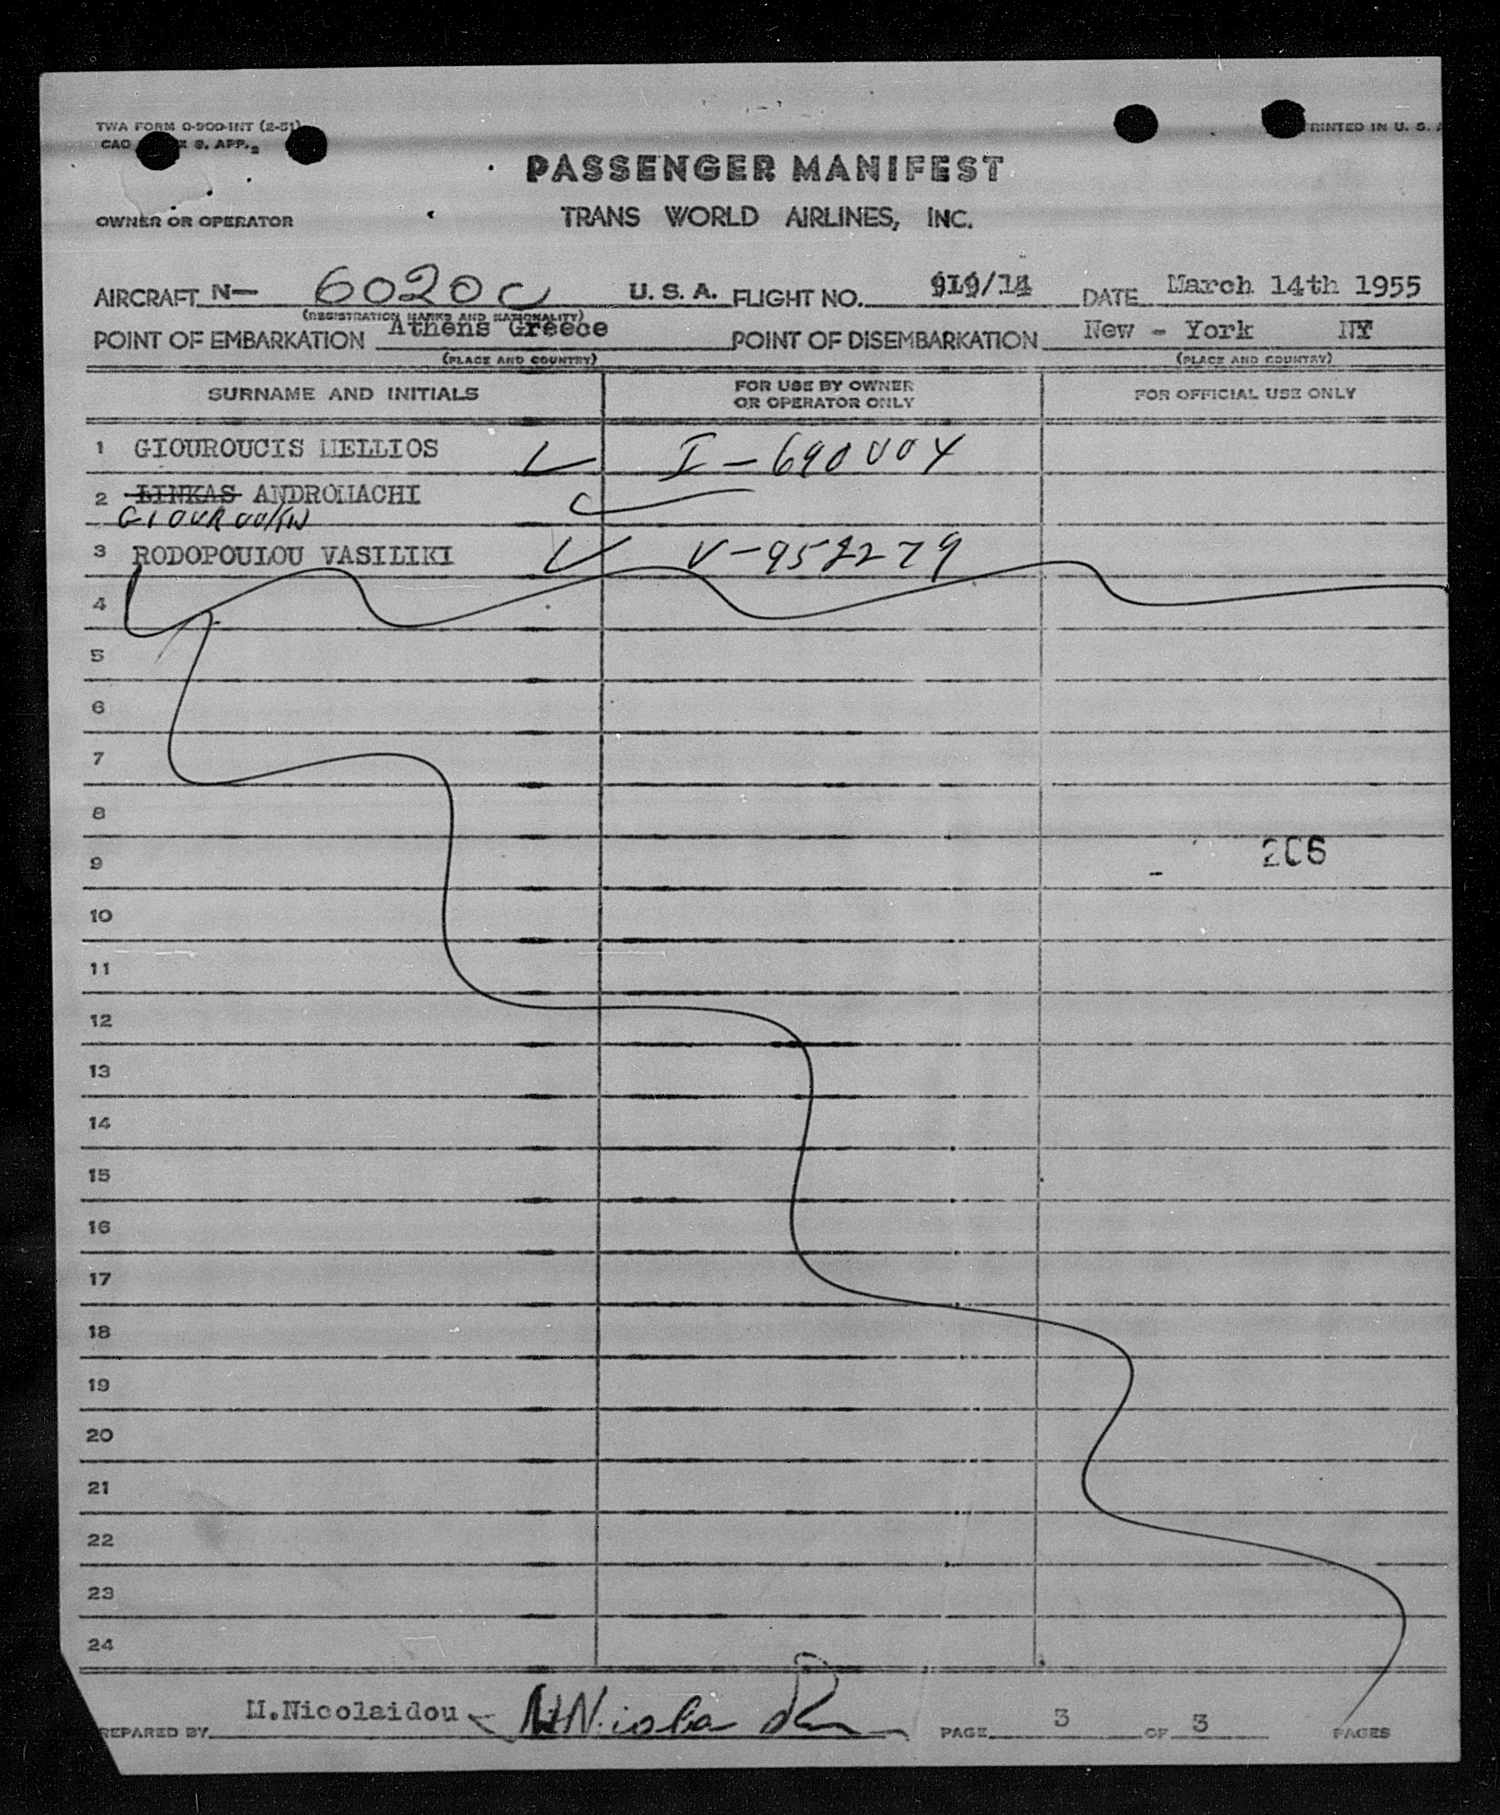 TWA FORM O-900-INT (2-51)
CAO 9. APP. 2
PRINTED IN U. S. A
PASSENGER MANIFEST
OWNER OR OPERATOR
TRANS WORLD AIRLINES, INC.
AIRCRAFT N- 6020C U. S. A. FLIGHT NO. 919/14 DATE March 14th 1955
(REGISTRATION MARKS AND NATIONALITY)
POINT OF EMBARKATION Athens Greece POINT OF DISEMBARKATION New - York NY
(PLACE AND COUNTRY) (PLACE AND COUNTRY)
SURNAME AND INITIALS FOR USE BY OWNER OR OPERATOR ONLY FOR OFFICIAL USE ONLY
1 GIOUROUCIS MELLIOS I-690004
2 LINKAS ANDROMACHI
3 RODOPOULOU VASILIKI V-952279
4
5
6
7
8
9 206
10
11
12
13
14
15
16
17
18
19
20
21
22
23
24
PREPARED BY M.Nicolaidou PAGE 3 OF 3 PAGES